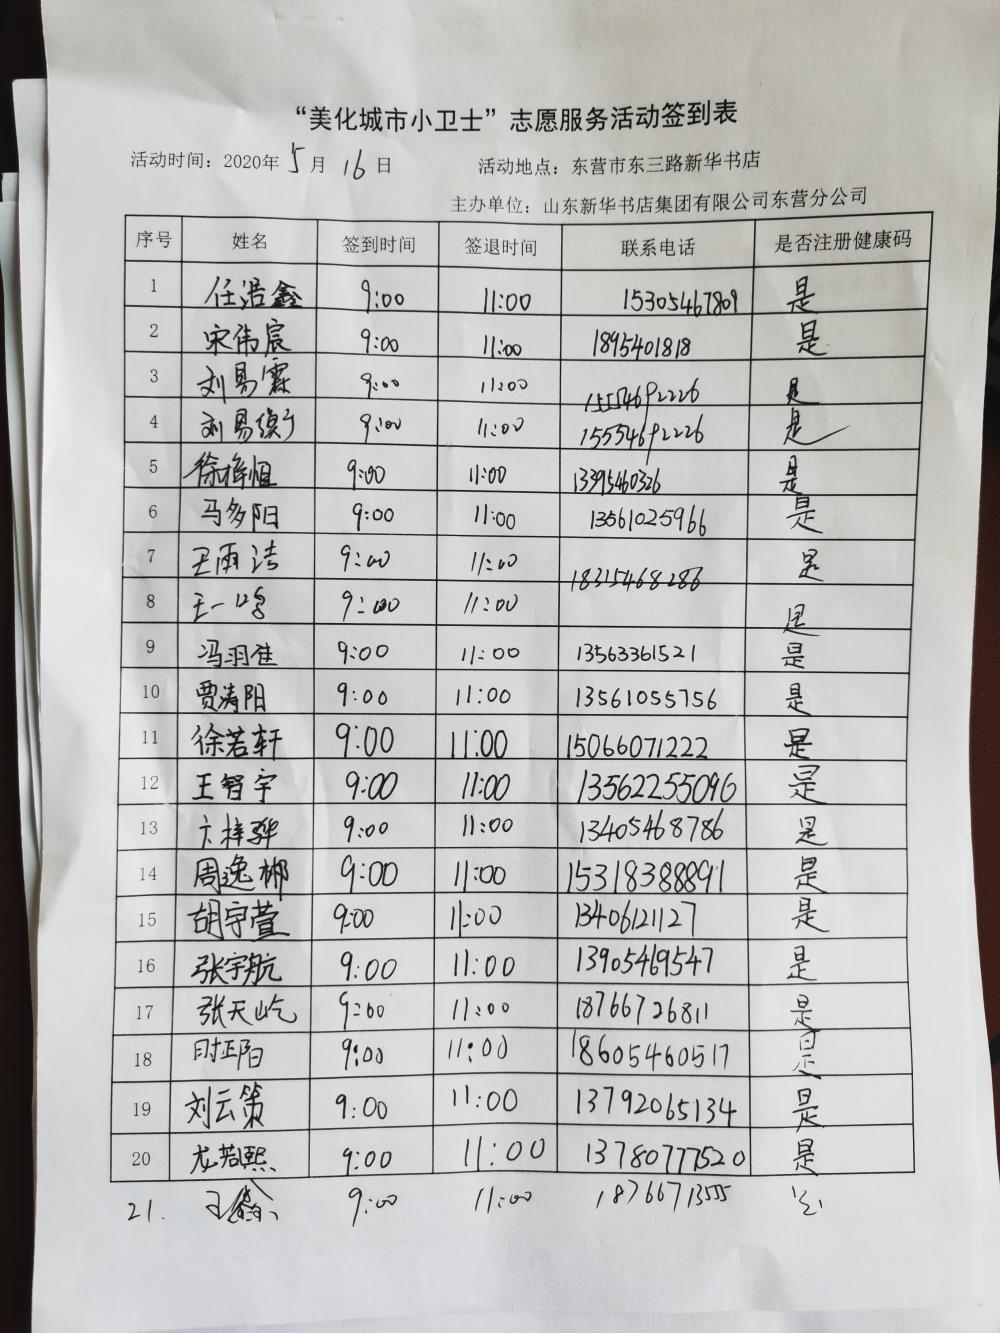 “美化城市小卫士”志愿服务活动签到表
活动时间：2020年 5 月 16 日 活动地点：东营市东三路新华书店
主办单位：山东新华书店集团有限公司东营分公司
序号 姓名 签到时间 签退时间 联系电话 是否注册健康码
1 任浩鑫 9:00 11:00 15305467809 是
2 宋伟宸 9:00 11:00 1895401818 是
3 刘易霖 9:00 11:00 15554692226 是
4 刘易 9:00 11:00 15554692226 是
5 徐梓恒 9:00 11:00 13395460326 是
6 马多阳 9:00 11:00 13561025966 是
7 王雨洁 9:00 11:00 18315468286 是
8 王一 9:00 11:00 是
9 冯羽佳 9:00 11:00 13563361521 是
10 贾涛阳 9:00 11:00 13561055756 是
11 徐若轩 9:00 11:00 15066071222 是
12 王智宇 9:00 11:00 13562255096 是
13 卞梓骅 9:00 11:00 13405468786 是
14 周逸郴 9:00 11:00 15318388891 是
15 胡宇萱 9:00 11:00 13406121127 是
16 张宇航 9:00 11:00 13905469547 是
17 张天屹 9:00 11:00 18766726811 是
18 时正阳 9:00 11:00 18605460517 是
19 刘云策 9:00 11:00 13792065134 是
20 龙若熙 9:00 11:00 13780777520 是
21. 王鑫 9:00 11:00 18766713555 是